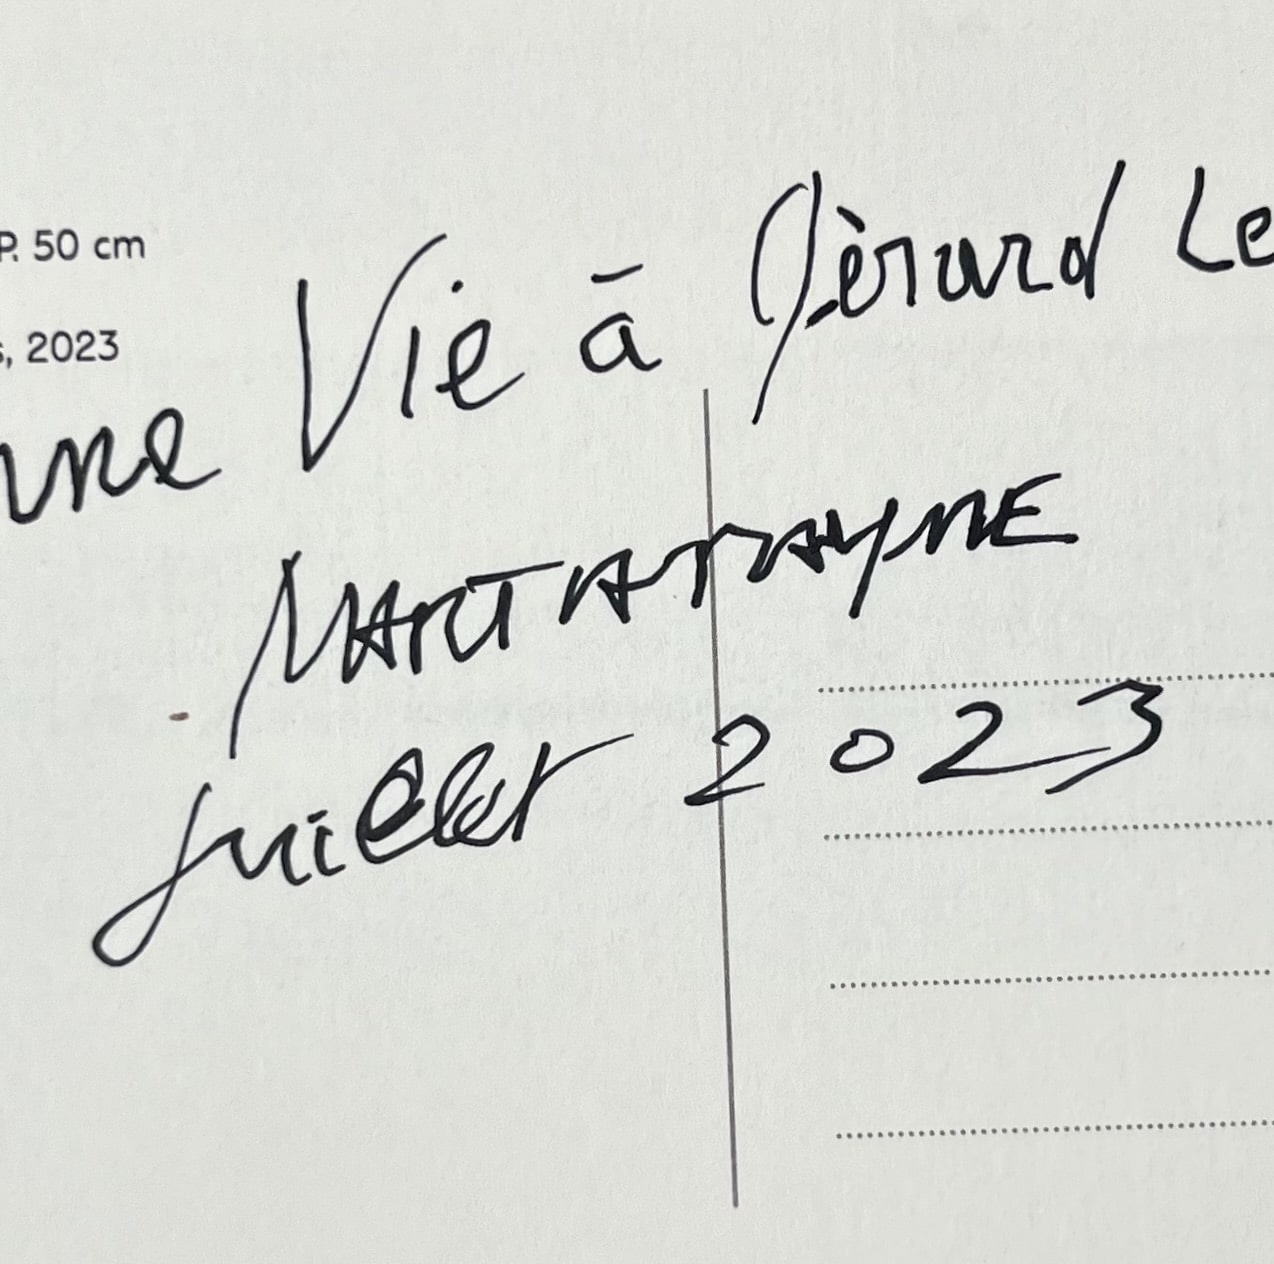 P. 50 cm
, 2023
une Vie à Gérard Le
MARTA RAYNE
juillet 2023